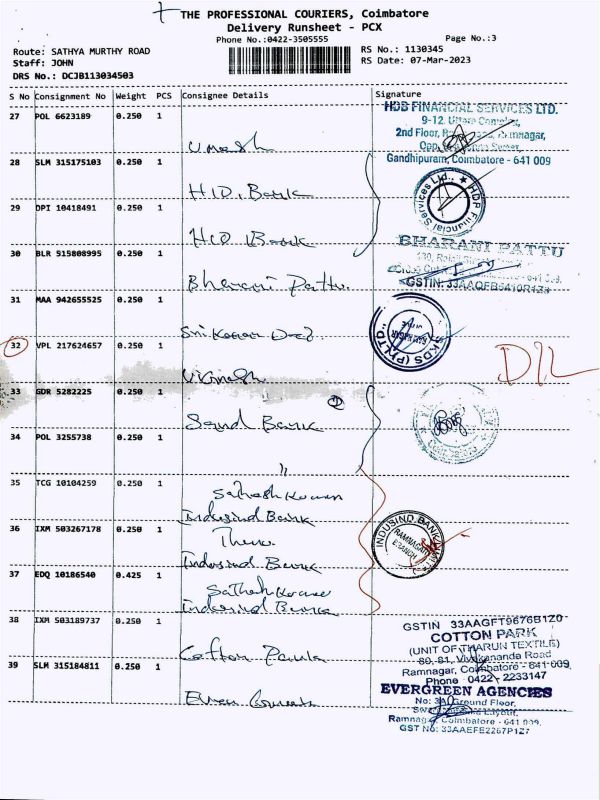 THE PROFESSIONAL COURIERS, Coimbatore
Delivery Runsheet - PCX
Phone No.:0422-3505555
Page No.:3
Route: SATHYA MURTHY ROAD
Staff: JOHN
DRS No.: DCJB113034503
RS No.: 1130345
RS Date: 07-Mar-2023
S No Consignment No Weight PCS Consignee Details Signature
27 POL 6623189 0.250 1
HDB FINANCIAL SERVICES LTD.
2nd Floor, Ramnagar,
Gandhipuram, Coimbatore - 641 009
Umesh
28 SLM 315175103 0.250 1
HDB Financial Services Ltd.,
Bank
29 DPI 10418491 0.250 1
Bank
30 BLR 515808995 0.250 1
BHARANI PATTU
Bharani Pattu.
31 MAA 942655525 0.250 1
KDS (P) LTD
32 VPL 217624657 0.250 1
Vignesh
D/L
33 GDR 5282225 0.250 1
Bank
34 POL 3255738 0.250 1
"
35 TCG 10104259 0.250 1
Sathesh Kumar
Indusind Bank
36 IXM 503267178 0.250 1
INDUSIND BANK
RAMNAGAR
BRANCH
Indusind Bank
37 EDQ 10186540 0.425 1
Indusind Bank
38 IXM 503189737 0.250 1
GSTIN 33AAGFT9676B1Z0
COTTON PARK
(UNIT OF THARUN TEXTILE)
80, 81, Vivekananda Road
Ramnagar, Coimbatore - 641 009
Phone 0422 - 2233147
39 SLM 315184811 0.250 1
EVERGREEN AGENCIES
Ground Floor,
Ramnagar, Coimbatore - 641 009,
GST No: 33AAEFE2267P1Z7